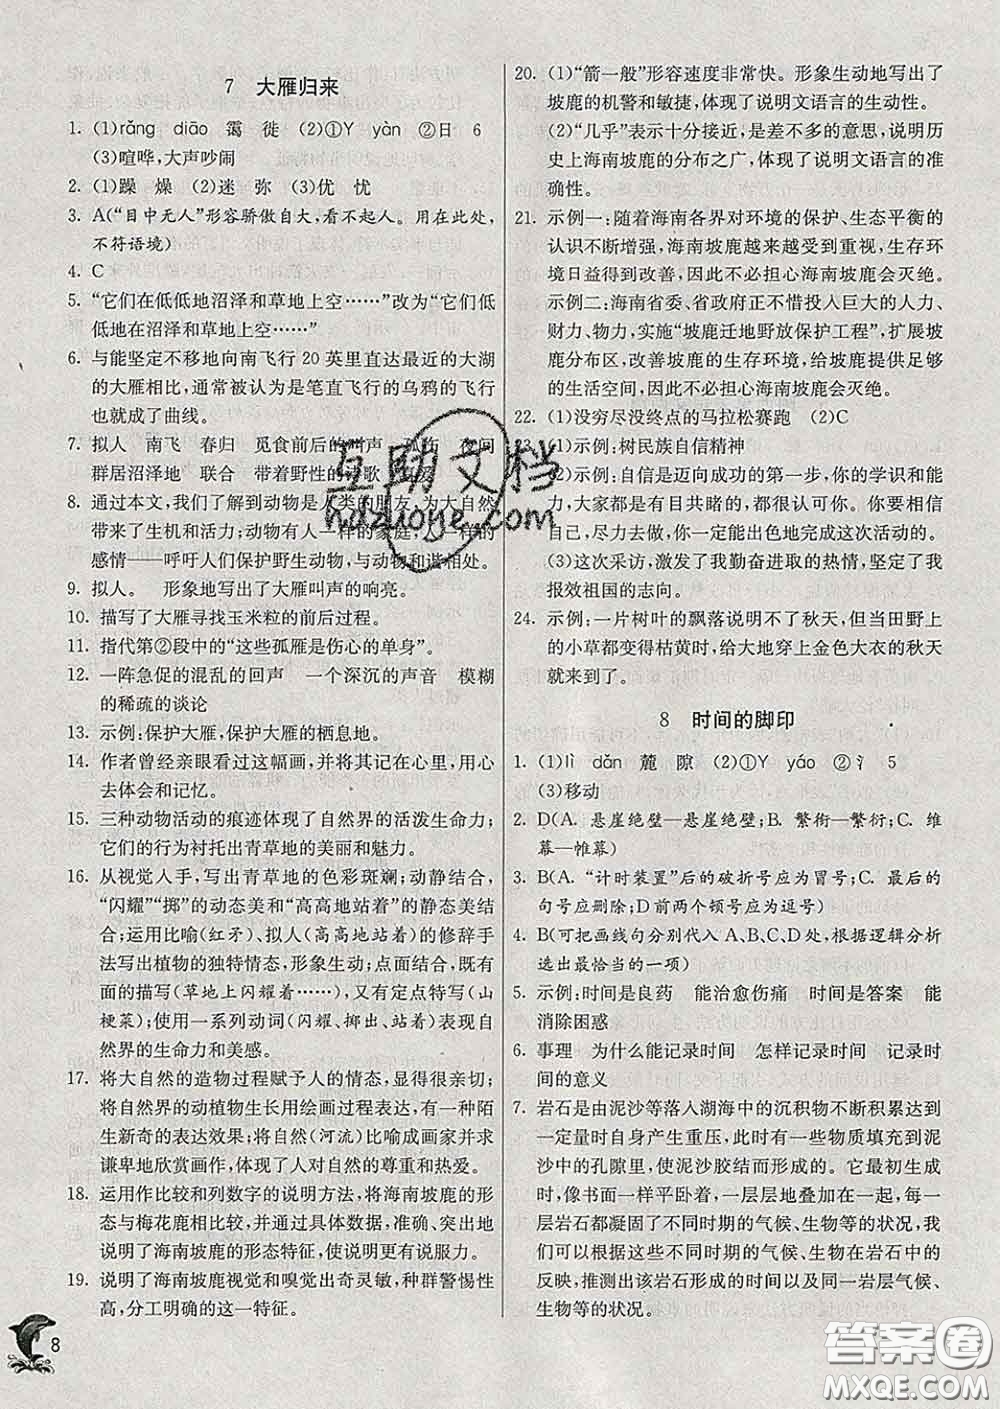 7 大雁归来
1. (1)rǎng diāo 霭 徙 (2)①Y yàn ②日 6
(3)喧哗,大声吵闹
2. (1)躁 燥 (2)迷 弥 (3)优 忧
3. A(“目中无人”形容骄傲自大,看不起人。用在此处,
不符语境)
4. C
5. “它们在低低地沼泽和草地上空……”改为“它们低
低地在沼泽和草地上空……”
6. 与能坚定不移地向南飞行 20 英里直达最近的大湖
的大雁相比,通常被认为是笔直飞行的乌鸦的飞行
也就成了曲线。
7. 拟人 南飞 春归 觅食前后的叫声 孤伤 夜间
群居沼泽地 联合 带着野性的诗歌 喜爱
8. 通过本文,我们了解到动物是人类的朋友,为大自然
带来了生机和活力;动物有人一样的家庭,人一样的
感情——呼吁人们保护野生动物,与动物和谐相处。
9. 拟人。 形象地写出了大雁叫声的响亮。
10. 描写了大雁寻找玉米粒的前后过程。
11. 指代第②段中的“这些孤雁是伤心的单身”。
12. 一阵急促的混乱的回声 一个深沉的声音 模糊
的稀疏的谈论
13. 示例:保护大雁,保护大雁的栖息地。
14. 作者曾经亲眼看过这幅画,并将其记在心里,用心
去体会和记忆。
15. 三种动物活动的痕迹体现了自然界的活泼生命力;
它们的行为衬托出青草地的美丽和魅力。
16. 从视觉入手,写出青草地的色彩斑斓;动静结合,
“闪耀”“掷”的动态美和“高高地站着”的静态美结
合;运用比喻(红矛)、拟人(高高地站着)的修辞手
法写出植物的独特情态,形象生动;点面结合,既有
面的描写(草地上闪耀着……),又有定点特写(山
梗菜);使用一系列动词(闪耀、掷出、站着)体现出
自然界的生命力和美感。
17. 将大自然的造物过程赋予人的情态,显得很亲切;
将自然界的动植物生长用绘画过程表达,有一种陌
生新奇的表达效果;将自然(河流)比喻成画家并求
谦卑地欣赏画作,体现了人对自然的尊重和热爱。
18. 运用作比较和列数字的说明方法,将海南坡鹿的形
态与梅花鹿相比较,并具体数据,准确、突出地
说明了海南坡鹿的形态特征,使说明更有说服力。
19. 说明了海南坡鹿视觉和嗅觉出奇灵敏,种群警惕性
高,分工明确的这一特征。
8
20. (1)“箭一般”形容速度非常快。形象生动地写出了
坡鹿的机警和敏捷,体现了说明文语言的生动性。
(2)“几乎”表示十分接近,是差不多的意思,说明历
史上海南坡鹿的分布之广,体现了说明文语言的准
确性。
21. 示例一:随着海南各界对环境的保护、生态平衡的
认识不断增强,海南坡鹿越来越受到重视,生存环
境日益得到改善,因此不必担心海南坡鹿会灭绝。
示例二:海南省委、省政府正不惜投入巨大的人力、
财力、物力,实施“坡鹿迁地野放保护工程”,扩展坡
鹿分布区,改善坡鹿的生存环境,给坡鹿提供足够
的生活空间,因此不必担心海南坡鹿会灭绝。
22. (1)没穷尽没终点的马拉松赛跑 (2)C
23. (1)示例:树民族自信精神
(2)示例:自信是迈向成功的第一步,你的学识和能
力,大家都是有目共睹的,都很认可你。你要相信
自己,尽力去做,你一定能出色地完成这次活动的。
(3)这次采访,激发了我勤奋进取的热情,坚定了我
报效祖国的志向。
24. 示例:一片树叶的飘落说明不了秋天,但当田野上
的小草都变得枯黄时,给大地穿上金色大衣的秋天
就来到了。
8 时间的脚印
1. (1)lì dǎn 麓 隙 (2)①Y yáo ②氵 5
(3)移动
2. D(A. 悬崖绝璧—悬崖绝壁;B. 繁衔—繁衍;C. 维
幕—帷幕)
3. B(A. “计时装置”后的破折号应为冒号;C. 最后的
句号应删除;D前两个顿号应为逗号)
4. B(可把画线句分别代入 A、B、C、D 处,根据逻辑分析
选出最恰当的一项)
5. 示例:时间是良药 能治愈伤痛 时间是答案 能
消除困惑
6. 事理 为什么能记录时间 怎样记录时间 记录时
间的意义
7. 岩石是由泥沙等落入湖海中的沉积物不断积累达到
一定量时自身产生重压,此时有一些物质填充到泥
沙中的孔隙里,使泥沙胶结而形成的。它最初生成
时,一层层像一样平卧着一层层地叠加在一起,每一
层岩石都凝固了不同时期的气候、生物等的状况,我
们可根据这些不同时期的气候、生物在岩石中的反
映,推测出该岩石形成的时间以及同一岩层气候、
生物等的状况。
互助文档
hdzuoye.com
答案圈
MXQE.COM